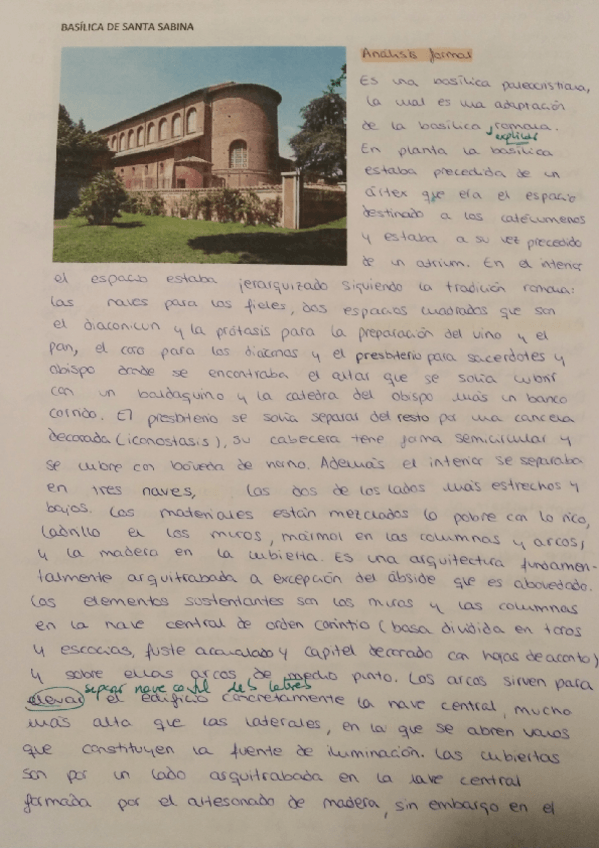 BASÍLICA DE SANTA SABINA
Análisis formal
Es una basílica paleocristiana,
la cual es una adaptación
de la basílica romana.
explicar
En planta la basílica
estaba precedida de un
nártex que era el espacio
destinado a los catecúmenos
y estaba a su vez precedido
de un atrium. En el interior
el espacio estaba jerarquizado siguiendo la tradición romana:
las naves para los fieles, dos espacios cuadrados que son
el diaconicun y la prótasis para la preparación del vino y el
pan, el coro para los diáconos y el presbiterio para sacerdotes y
obispo donde se encontraba el altar que se solía cubrir
con un baldaquino y la catedra del obispo más un banco
corrido. El presbiterio se solía separar del resto por una cancela
decorada (iconostasis), su cabecera tiene forma semicircular y
se cubre con bóveda de horno. Además el interior se separaba
en tres naves, las dos de los lados más estrechos y
bajos. Los materiales están mezclados lo pobre con lo rico,
ladrillo en los muros, mármol en las columnas y arcos,
y la madera en la cubierta. Es una arquitectura fundamen-
talmente arquitrabada a excepción del ábside que es abovedado.
Los elementos sustentantes son los muros y las columnas
en la nave central de orden corintio (basa dividida en toros
y escocias, fuste acanalado y capitel decorado con hojas de acanto)
y sobre ellas arcos de medio punto. Los arcos sirven para
separar nave central de laterales
elevar el edificio concretamente la nave central, mucho
más alta que las laterales, en la que se abren vanos
que constituyen la fuente de iluminación. Las cubiertas
son por un lado arquitrabada en la nave central
formada por el artesonado de madera, sin embargo en el